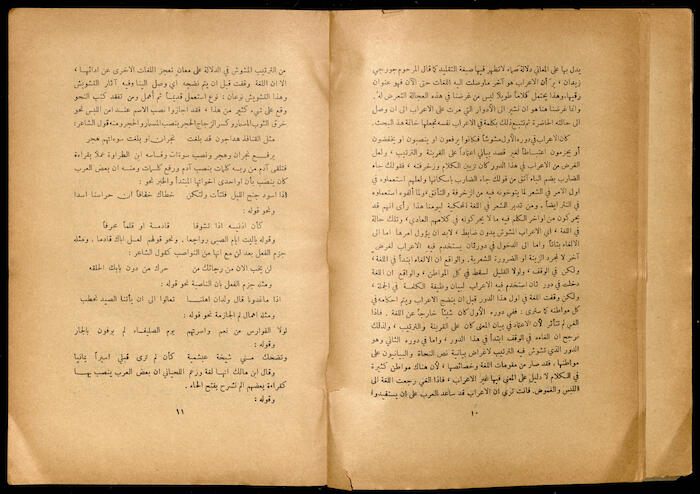 يدل بها على المعاني دلالة صماء لا تظهر فيها صبغة التقليد كما قال المرحوم جورجي
زيدان ، بان الاعراب هو آخر ما وصلت اليه اللغات حتى الآن فهو عنوان
رقيها. وهذا يحتمل كلاماً طويلاً ليس من غرضنا في هذه العجالة التعرض له.
وانما غرضنا هنا هو ان نشير الى الأدوار التي مرت على الاعراب الى ان وصل
الى حالته الحاضرة ثم نتبع ذلك بكلمة في الاعراب نفسه نجعلها خاتمة هذا البحث.
كان الاعراب في دوره الأول مشوشاً فكانوا يرفعون او ينصبون او يخفضون
أو يجزمون اعتباطاً لغير قصد بياني اعتماداً على القرينة والترتيب ، ولعل
الغرض من الاعراب في هذا الدور كان تزيين الكلام وزخرفته ، فقولك جاء
الضارب بضم الباء آنق من قولك جاء الضارب باسكانها ولعلهم استعملوه في
اول الامر في الشعر لما يتوخونه فيه من الزخرفة والتأنق، ولما ألفوه استعملوه
في النثر ايضاً. ومن تدبر الشعر في اللغة المحكية ليومنا هذا رأى انهم قد
يحركون من اواخر الكلم فيه ما لا يحركونه في كلامهم العادي، وتلك حالة
في اللغة ، اي الاعراب المشوش بدون ضابط ، لابد ان يؤول امرها اما الى
الالغاء بتاتاً واما الى الدخول في دور ثان يستخدم فيه الاعراب لغرض
آخر لا لمجرد الزينة او الضرورة الشعرية. والواقع ان الالغاء ابتدأ في اللغة،
ولكن في الوقف، ولولا القليل لسقط في كل المواطن ، والواقع ان اللغة
دخلت في دور ثان استخدم فيه الاعراب لبيان وظيفة الكلمة في الجملة ،
ولكن وقفت اللغة في اول هذا الدور قبل ان ينضج الاعراب ويتم احكامه في
كل مواطنه كما سترى : ففي دوره الأول كان شيئاً خارجاً عن اللغة. فاذا
الغي لم تتأثر لأن الاعتماد في بيان المعنى كان على القرينة والترتيب ، ولذلك
نرجح ان الغاءه في الوقف ابتدأ في هذا الدور ، واما في دوره الثاني وهو
الدور الذي تشوش فيه الترتيب لاغراض بيانية نص النحاة والبيانيون على
مواطنها . فقد صار من مقومات اللغة وخصائصها ، لأن هناك مواطن كثيرة
في الكلام لا دليل على المعنى فيها غير الاعراب ، فاذا الغي رجعت اللغة الى
اللبس والغموض. فانت ترى ان الاعراب قد ساعد العرب على ان يستفيدوا
١٠
من الترتيب المشوش في الدلالة على معان تعجز اللغات الاخرى عن ادائها ،
الا ان اللغة وقفت قبل ان يتم نضجه اي وصل الينا وفيه آثار التشويش
وهذا التشويش نوعان : نوع استعمل قديماً ثم أهمل ومن تفقد كتب النحو
وقع على شيء كثير من هذا ، فقد اجازوا نصب الاسم عند امن اللبس نحو
خرق الثوب المسمار وكسر الزجاج الحجر بنصب المسمار والحجر ومنه قول الشاعر:
مثل القنافذ هداجون قد بلغت نجران او بلغت سوءاتهم هجر
برفع نجران وهجر ونصب سوءات وقاسه ابن الطراوة عملاً بقراءة
فتلقى آدم من ربه كلمات بنصب آدم ورفع كلمات ومنه ان بعض العرب
كان ينصب بأن او احدى اخواتها المبتدأ والخبر نحو :
اذا اسود جنح الليل فلتأت ولتكن خطاك خفافاً ان حراسنا اسدا
ونحو قوله :
كأن اذنيه اذا تشوفا قادمة او قلماً محرفاً
وقوله ياليت ايام الصبى رواجعا . ونحو قولهم لعل اباك قادما . ومثله
جزم الفعل بعد لن مع انها من النواصب كقول الشاعر :
لن يخب الان من رجائك من حرك من دون بابك الحلقه
ومثله جزم الفعل بان الناصبة نحو قوله :
اذا ماغدونا قال ولدان اهلنا تعالوا الى ان يأتنا الصيد نحطب
ومثله اهمال لم الجازمة نحو قوله :
لولا الفوارس من نعم واسرتهم يوم الصليفاء لم يوفون بالجار
وقوله :
وتضحك مني شيخة عبشمية كأن لم ترى قبلي اسيراً يمانيا
وقال ابن مالك انها لغة وزعم اللحياني ان بعض العرب ينصب بها
كقراءة بعضهم الم نشرح بفتح الحاء .
وقوله :
١١